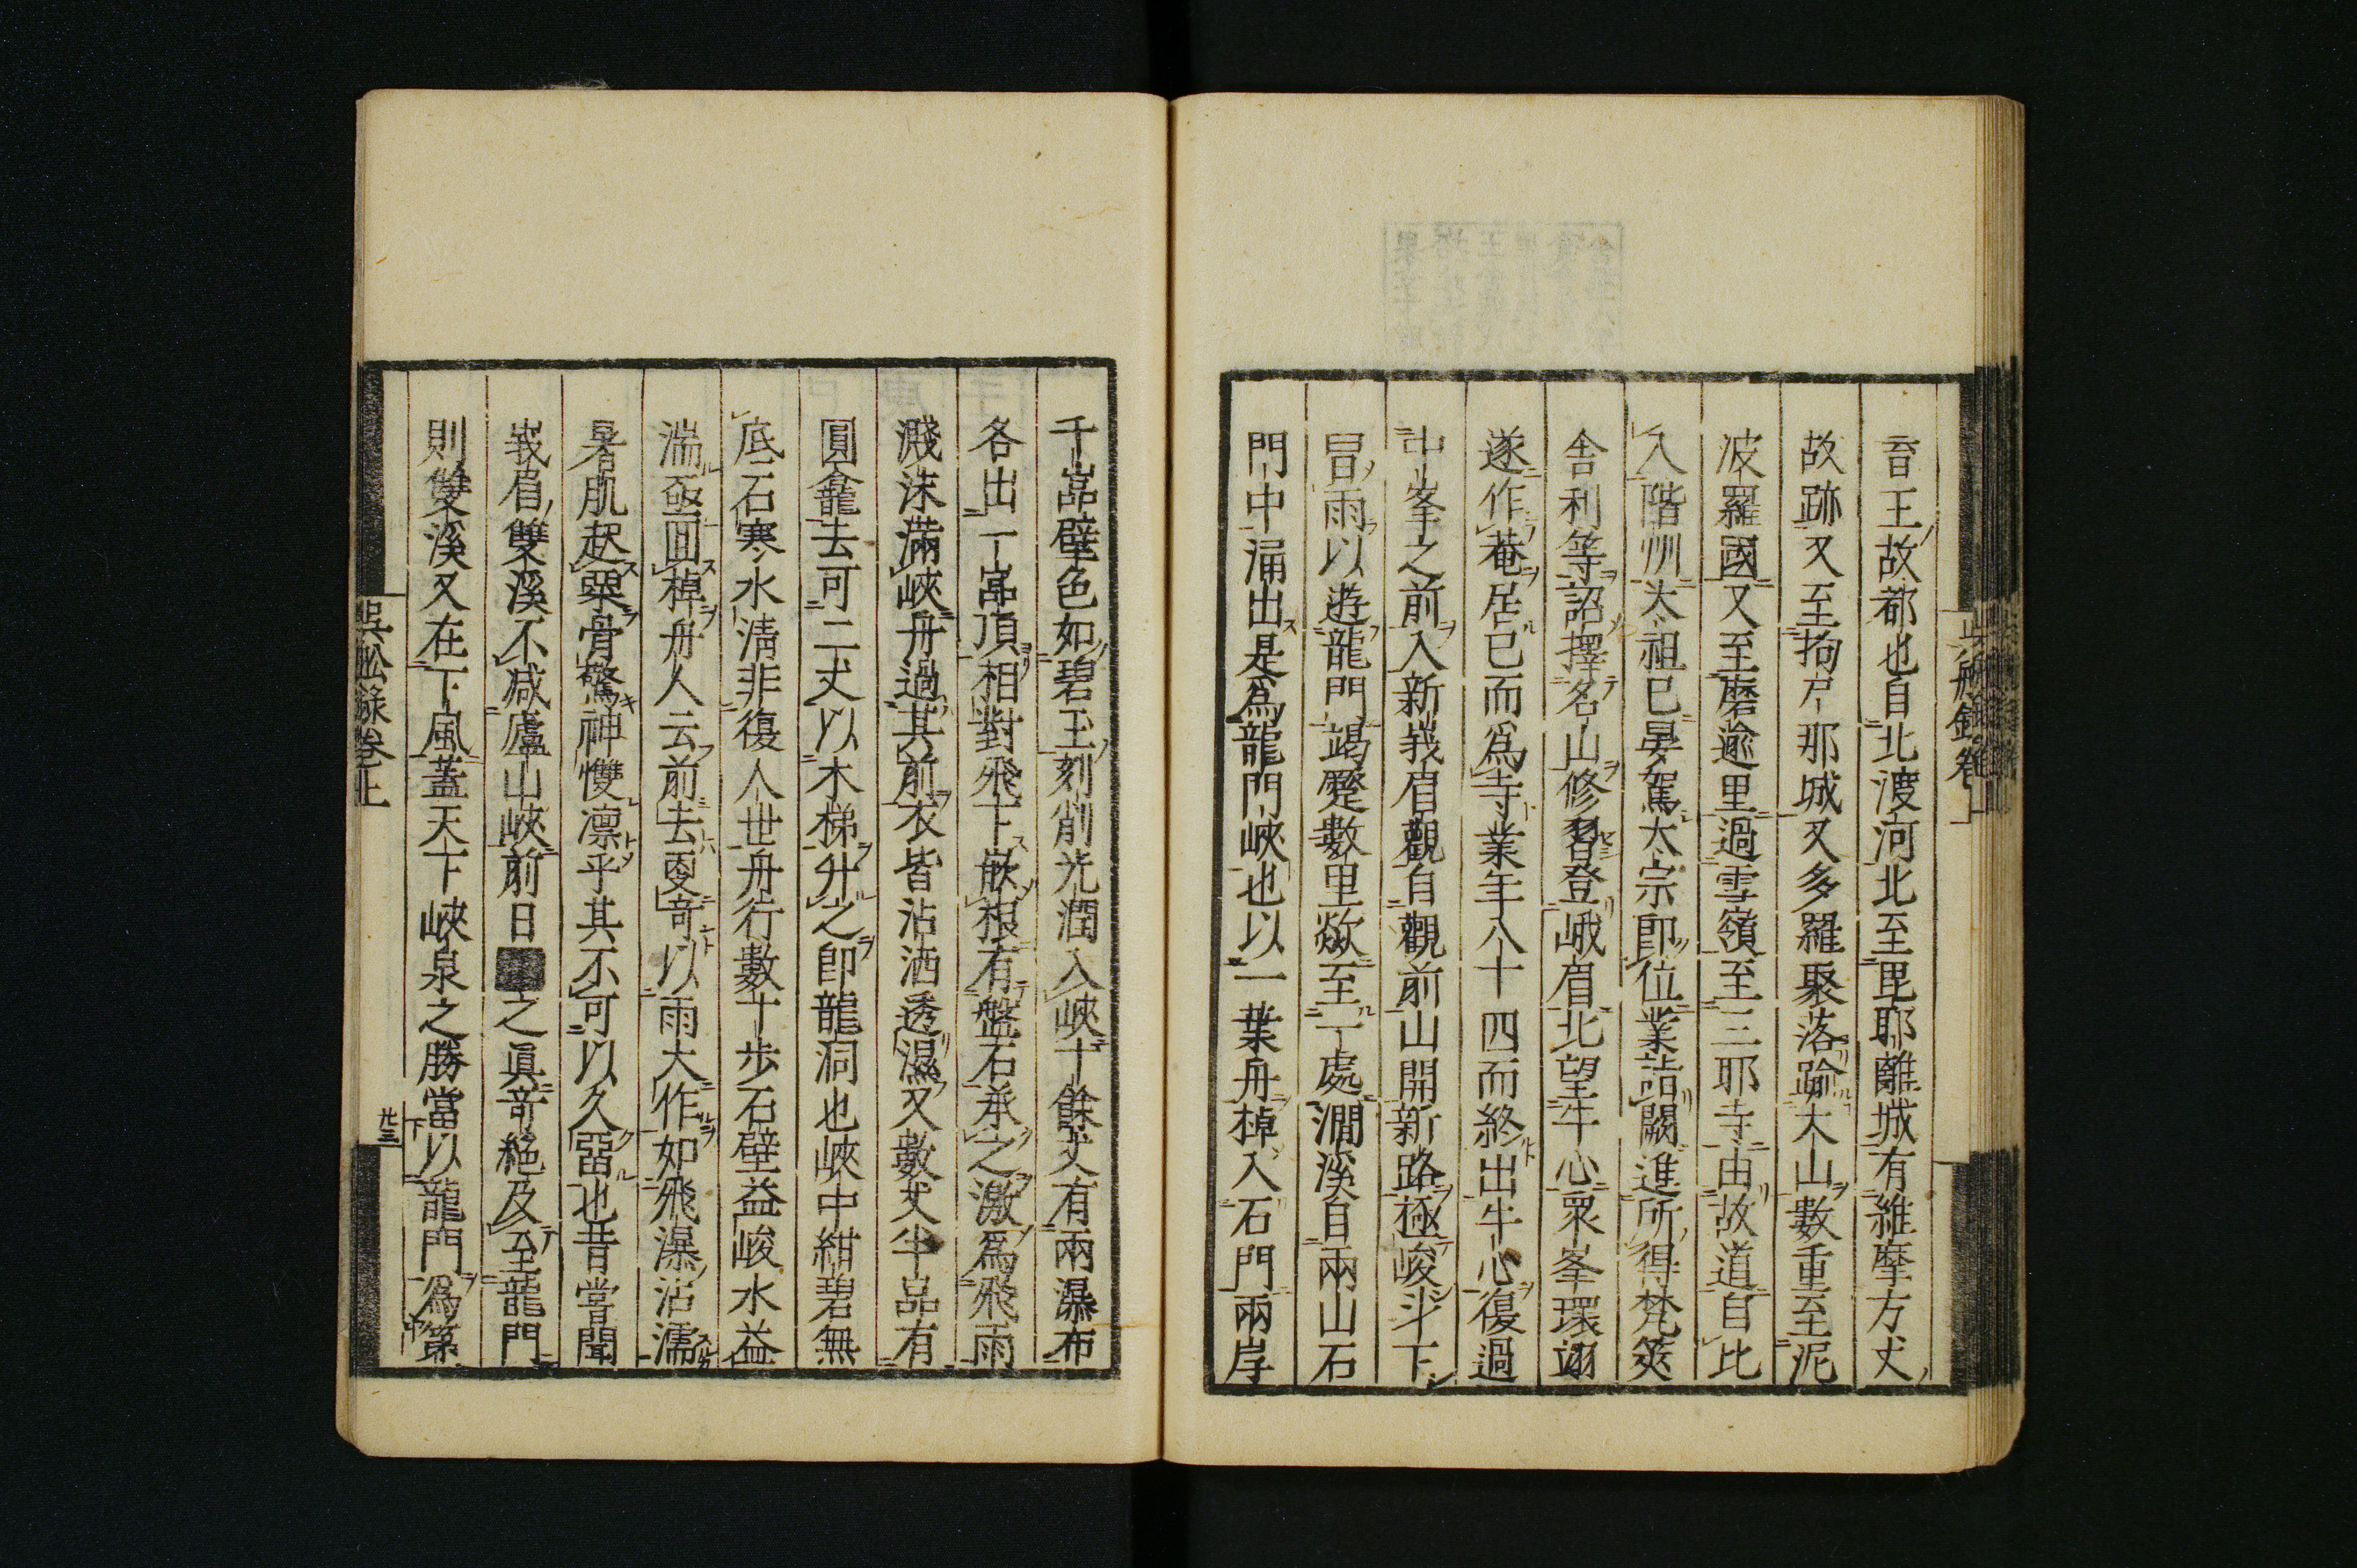 育王故都也自北渡河北至毘耶離城有維摩方丈
故跡又至拘尸那城又多羅聚落踰大山數重至泥
波羅國又至磨逾里過雪嶺至三耶寺由故道自此
入階州太祖已晏駕太宗即位業詣闕進所得梵筴
舍利等詔擇名山修習登峨眉北望牛心衆峯環翊
遂作菴居已而爲寺業年八十四而終出牛心復過
中峯之前入新峩眉觀自觀前山開新路極峻斗下
冒雨以遊龍門竭蹷數里欻至一處澗溪自兩山石
門中涌出是爲龍門峽也以一葉舟棹入石門兩岸
千嵓壁色如碧玉刻削光潤入峽十餘丈有兩瀑布
各出一嵓頂相對飛下嵌根有盤石承之激爲飛雨
濺沫滿峽舟過其前衣皆沾洒透濕又數丈半嵓有
圓龕去可二丈以木梯升之即龍洞也峽中紺碧無
底石寒水清非復人世舟行數十歩石壁益峻水益
湍亟回棹舟人云前去更竒以雨大作如飛瀑沾濡
暑肌起粟骨驚神㦼凛乎其不可以久留也昔嘗聞
峩眉雙溪不減廬山峽前日之眞竒絶及至龍門
則雙溪又在下風蓋天下峽泉之勝當以龍門爲第
吳舩録卷上
廿三